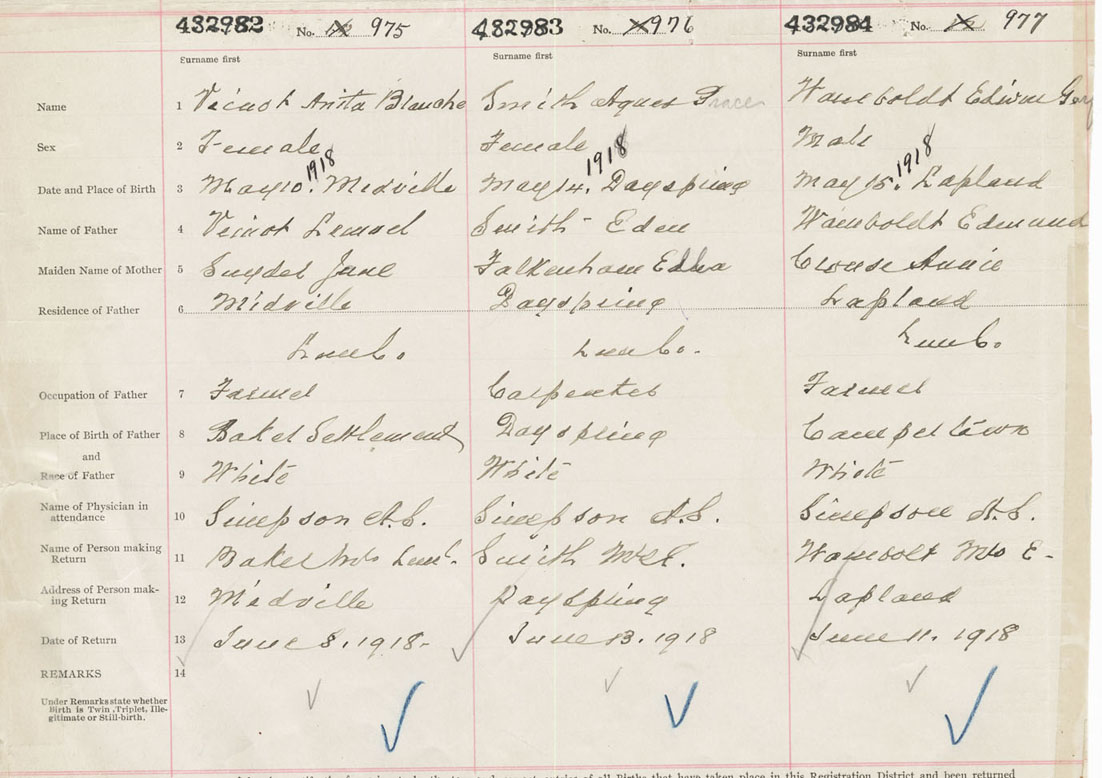 432982 No. 975 432983 No. 976 432984 No. 977
Surname first Surname first Surname first
Name 1 Veinot Anita Blanche Smith Agnes Grace Wamboldt Edwin
Sex 2 Female Female Male
1918 1918 1918
Date and Place of Birth 3 May 10. Midville May 14. Dayspring May 15. Lapland
Name of Father 4 Veinot Lemuel Smith Eden Wamboldt Edmund
Maiden Name of Mother 5 Snyder Jane Falkenham Edna Crouse Annie
Residence of Father 6 Midville Dayspring Lapland
Lun Co. Lun Co. Lun Co.
Occupation of Father 7 Farmer Carpenter Farmer
Place of Birth of Father 8 Baker Settlement Dayspring Camperdown
and
Race of Father 9 White White White
Name of Physician in
attendance 10 Simpson A.S. Simpson A.S. Simpson A.S.
Name of Person making
Return 11 Baker Mrs Smith Mrs E. Wambolt Mrs E-
Address of Person mak-
ing Return 12 Midville Dayspring Lapland
Date of Return 13 June 8. 1918. June 13. 1918 June 11. 1918
REMARKS 14
Under Remarks state whether
Birth is Twin, Triplet, Ille-
gitimate or Still-birth.
entries of all Births that have taken place in this Registration District and been returned